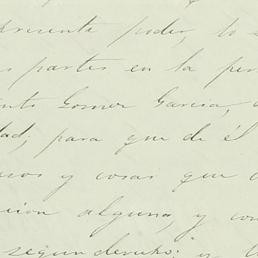 presente poder, lo
partes en la per
Gomer Garcia,
dad, para que de él
y cosas que
cion alguna, y con
segun derecho; y